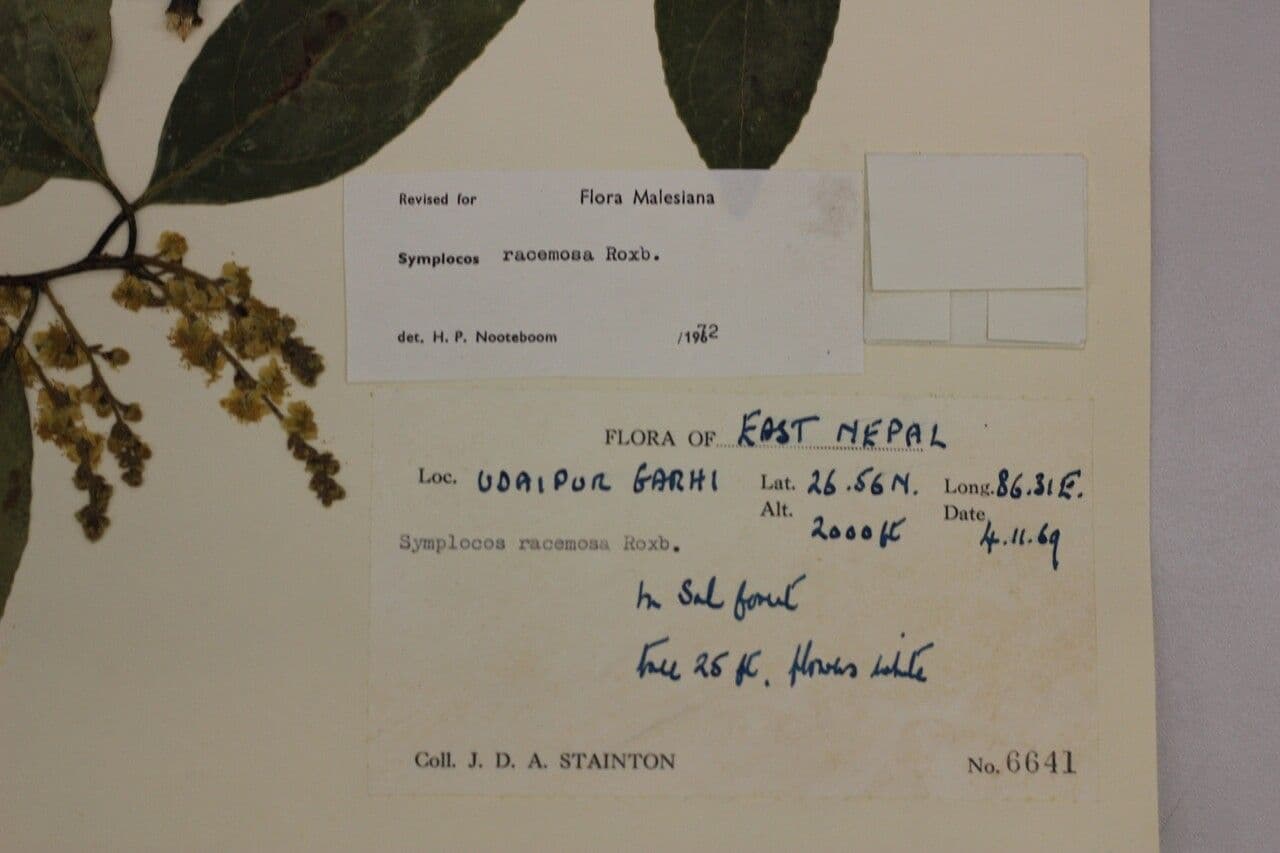 Revised for Flora Malesiana
Symplocos racemosa Roxb.
det. H. P. Nooteboom /1972
FLORA OF EAST NEPAL
Loc. UDAIPUR GARHI Lat. 26.56 N. Long. 86.31 E.
Alt. 2000 ft Date 4.11.69
Symplocos racemosa Roxb.
In Sal forest
tree 25 ft. flowers white
Coll. J. D. A. STAINTON No. 6641